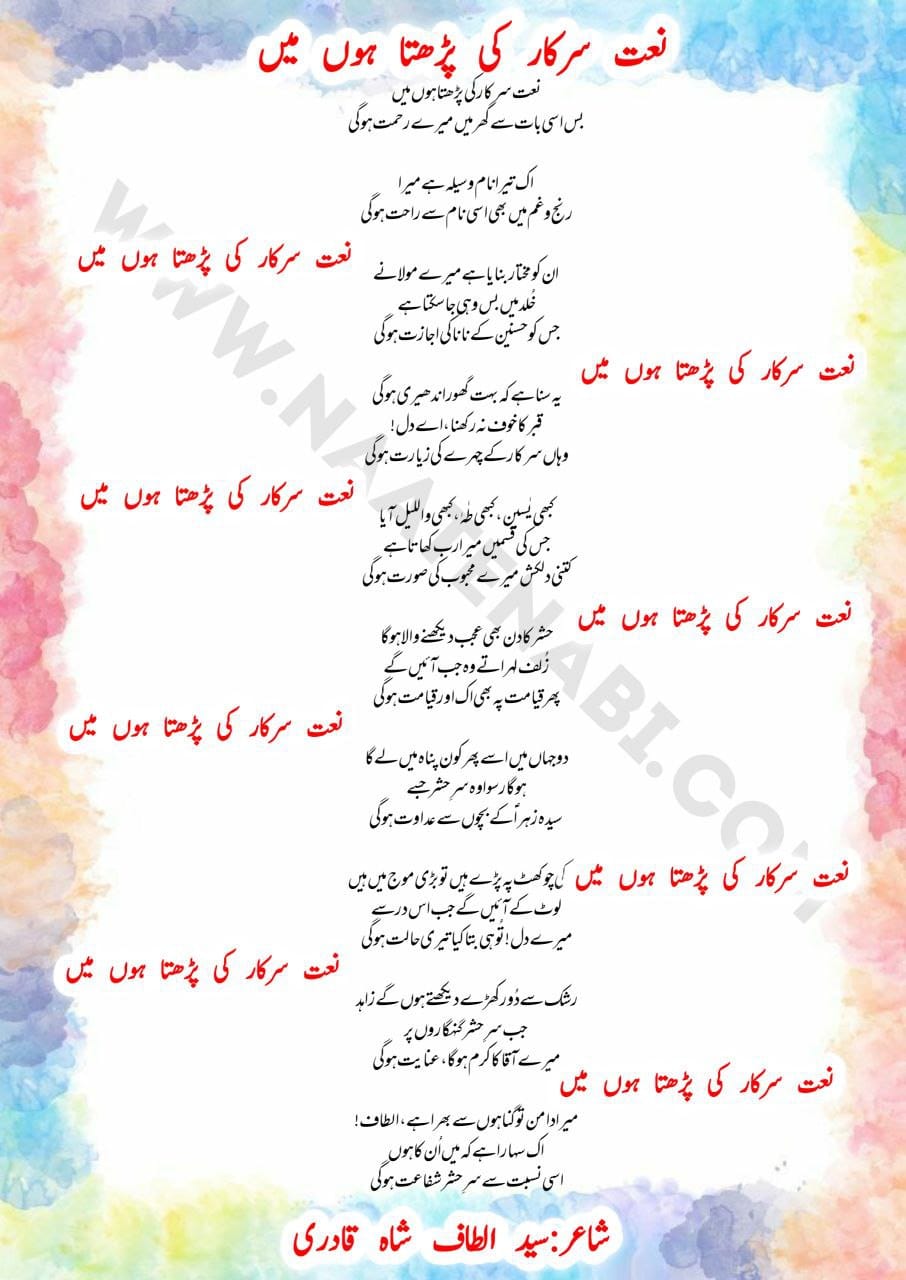 نعت سرکار کی پڑھتا ہوں میں
نعت سرکار کی پڑھتا ہوں میں
بس اسی بات سے گھر میں میرے رحمت ہوگی
اک تیرا نام وسیلہ ہے میرا
رنج و غم میں بھی اسی نام سے راحت ہوگی
نعت سرکار کی پڑھتا ہوں میں
ان کو مختار بنایا ہے میرے مولا نے
خُلد میں بس وہی جا سکتا ہے
جس کو حسنین کے نانا کی اجازت ہوگی
نعت سرکار کی پڑھتا ہوں میں
یہ سنا ہے کہ بہت گھور اندھیری ہوگی
قبر کا خوف نہ رکھنا، اے دل!
وہاں سرکار کے چہرے کی زیارت ہوگی
نعت سرکار کی پڑھتا ہوں میں
کبھی یٰسین، کبھی طہٰ، کبھی واللیل آیا
جس کی قسمیں میرا رب کھاتا ہے
کتنی دلکش میرے محبوب کی صورت ہوگی
نعت سرکار کی پڑھتا ہوں میں
حشر کا دن بھی عجب دیکھنے والا ہوگا
زُلف لہراتے وہ جب آئیں گے
پھر قیامت پہ بھی اک اور قیامت ہوگی
نعت سرکار کی پڑھتا ہوں میں
دو جہاں میں اسے پھر کون پناہ میں لے گا
ہوگا رسوا وہ سرِ حشر جسے
سیدہ زہراؑ کے بچوں سے عداوت ہوگی
نعت سرکار کی پڑھتا ہوں میں
کی چوکھٹ پہ پڑے ہیں تو بڑی موج میں ہیں
لوٹ کے آئیں گے جب اس در سے
میرے دل! تُو ہی بتا کیا تیری حالت ہوگی
نعت سرکار کی پڑھتا ہوں میں
رشک سے دُور کھڑے دیکھتے ہوں گے زاہد
جب سرِ حشر گنہگاروں پر
میرے آقا کا کرم ہوگا، عنایت ہوگی
نعت سرکار کی پڑھتا ہوں میں
میرا دامن تو گناہوں سے بھرا ہے، الطاف!
اک سہارا ہے کہ میں اُن کا ہوں
اسی نسبت سے سرِ حشر شفاعت ہوگی
شاعر:سید الطاف شاہ قادری
WWW.NAATENABI.COM